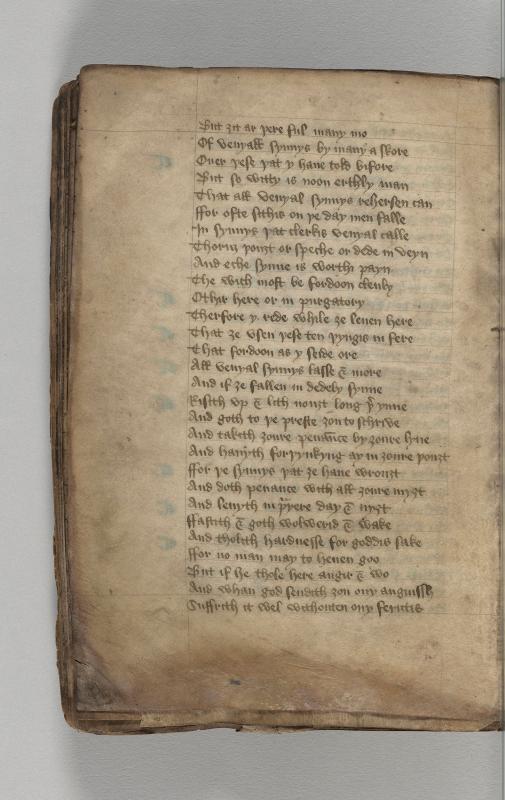 But ȝit ar þere ful many mo
Of venyall synnys by many a skore
Ouer þese þat y haue told bifore
But so witty is noon erthly man
That all venyal synnys rehersen can
ffor ofte sithis on þe day men falle
In synnys þat clerkis venyal calle
Thoruȝ þouȝt or speche or dede in veyn
And eche synne is worthi payn
The wich most be fordoon clenly
Othir here or in purgatory
Therfore y rede while ȝe leuen here
That ȝe vsen þese ten þyngis in fere
That fordoon as y seide ore
All venyal synnys lasse & more
And if ȝe fallen in dedely synne
Risith vp & lith nouȝt long þͬ ynne
And goth to þe preste ȝou to schrive
And takith ȝoure penaūce by ȝoure lyue
And hauyth forþynkyng ay in ȝoure þouȝt
ffor þe synnys þat ȝe haue wrouȝt
And doth penance with all ȝoure myȝt
And beuyth in p̱yere day & nyȝt
ffastith & goth wolwerid & wake
And tholith hardnesse for goddis sake
ffor no man may to heuen goo
But if he thole here angir & wo
And whan god sendith ȝou ony anguissh
Suffrith it wel withouten ony feyntis